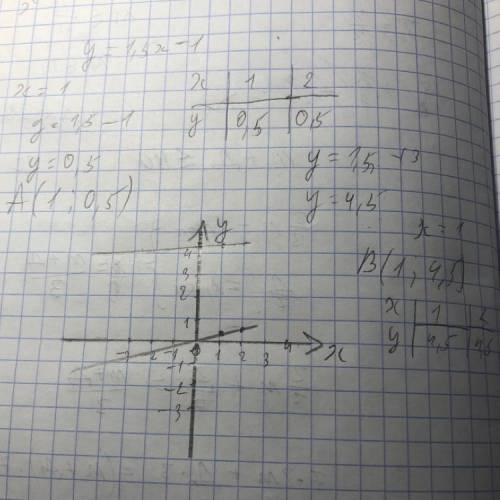 y = 1,5x - 1
x = 1
y = 1,5 - 1
y = 0,5
A(1; 0,5)
x | 1 | 2
y | 0,5 | 0,5
y = 1,5 + 3
y = 4,5
x = 1
B(1; 4,5)
x | 1 | 2
y | 4,5 | 4,5
y
4
3
2
1
-3 -2 -1 0 1 2 3 4 x
-1
-2
-3